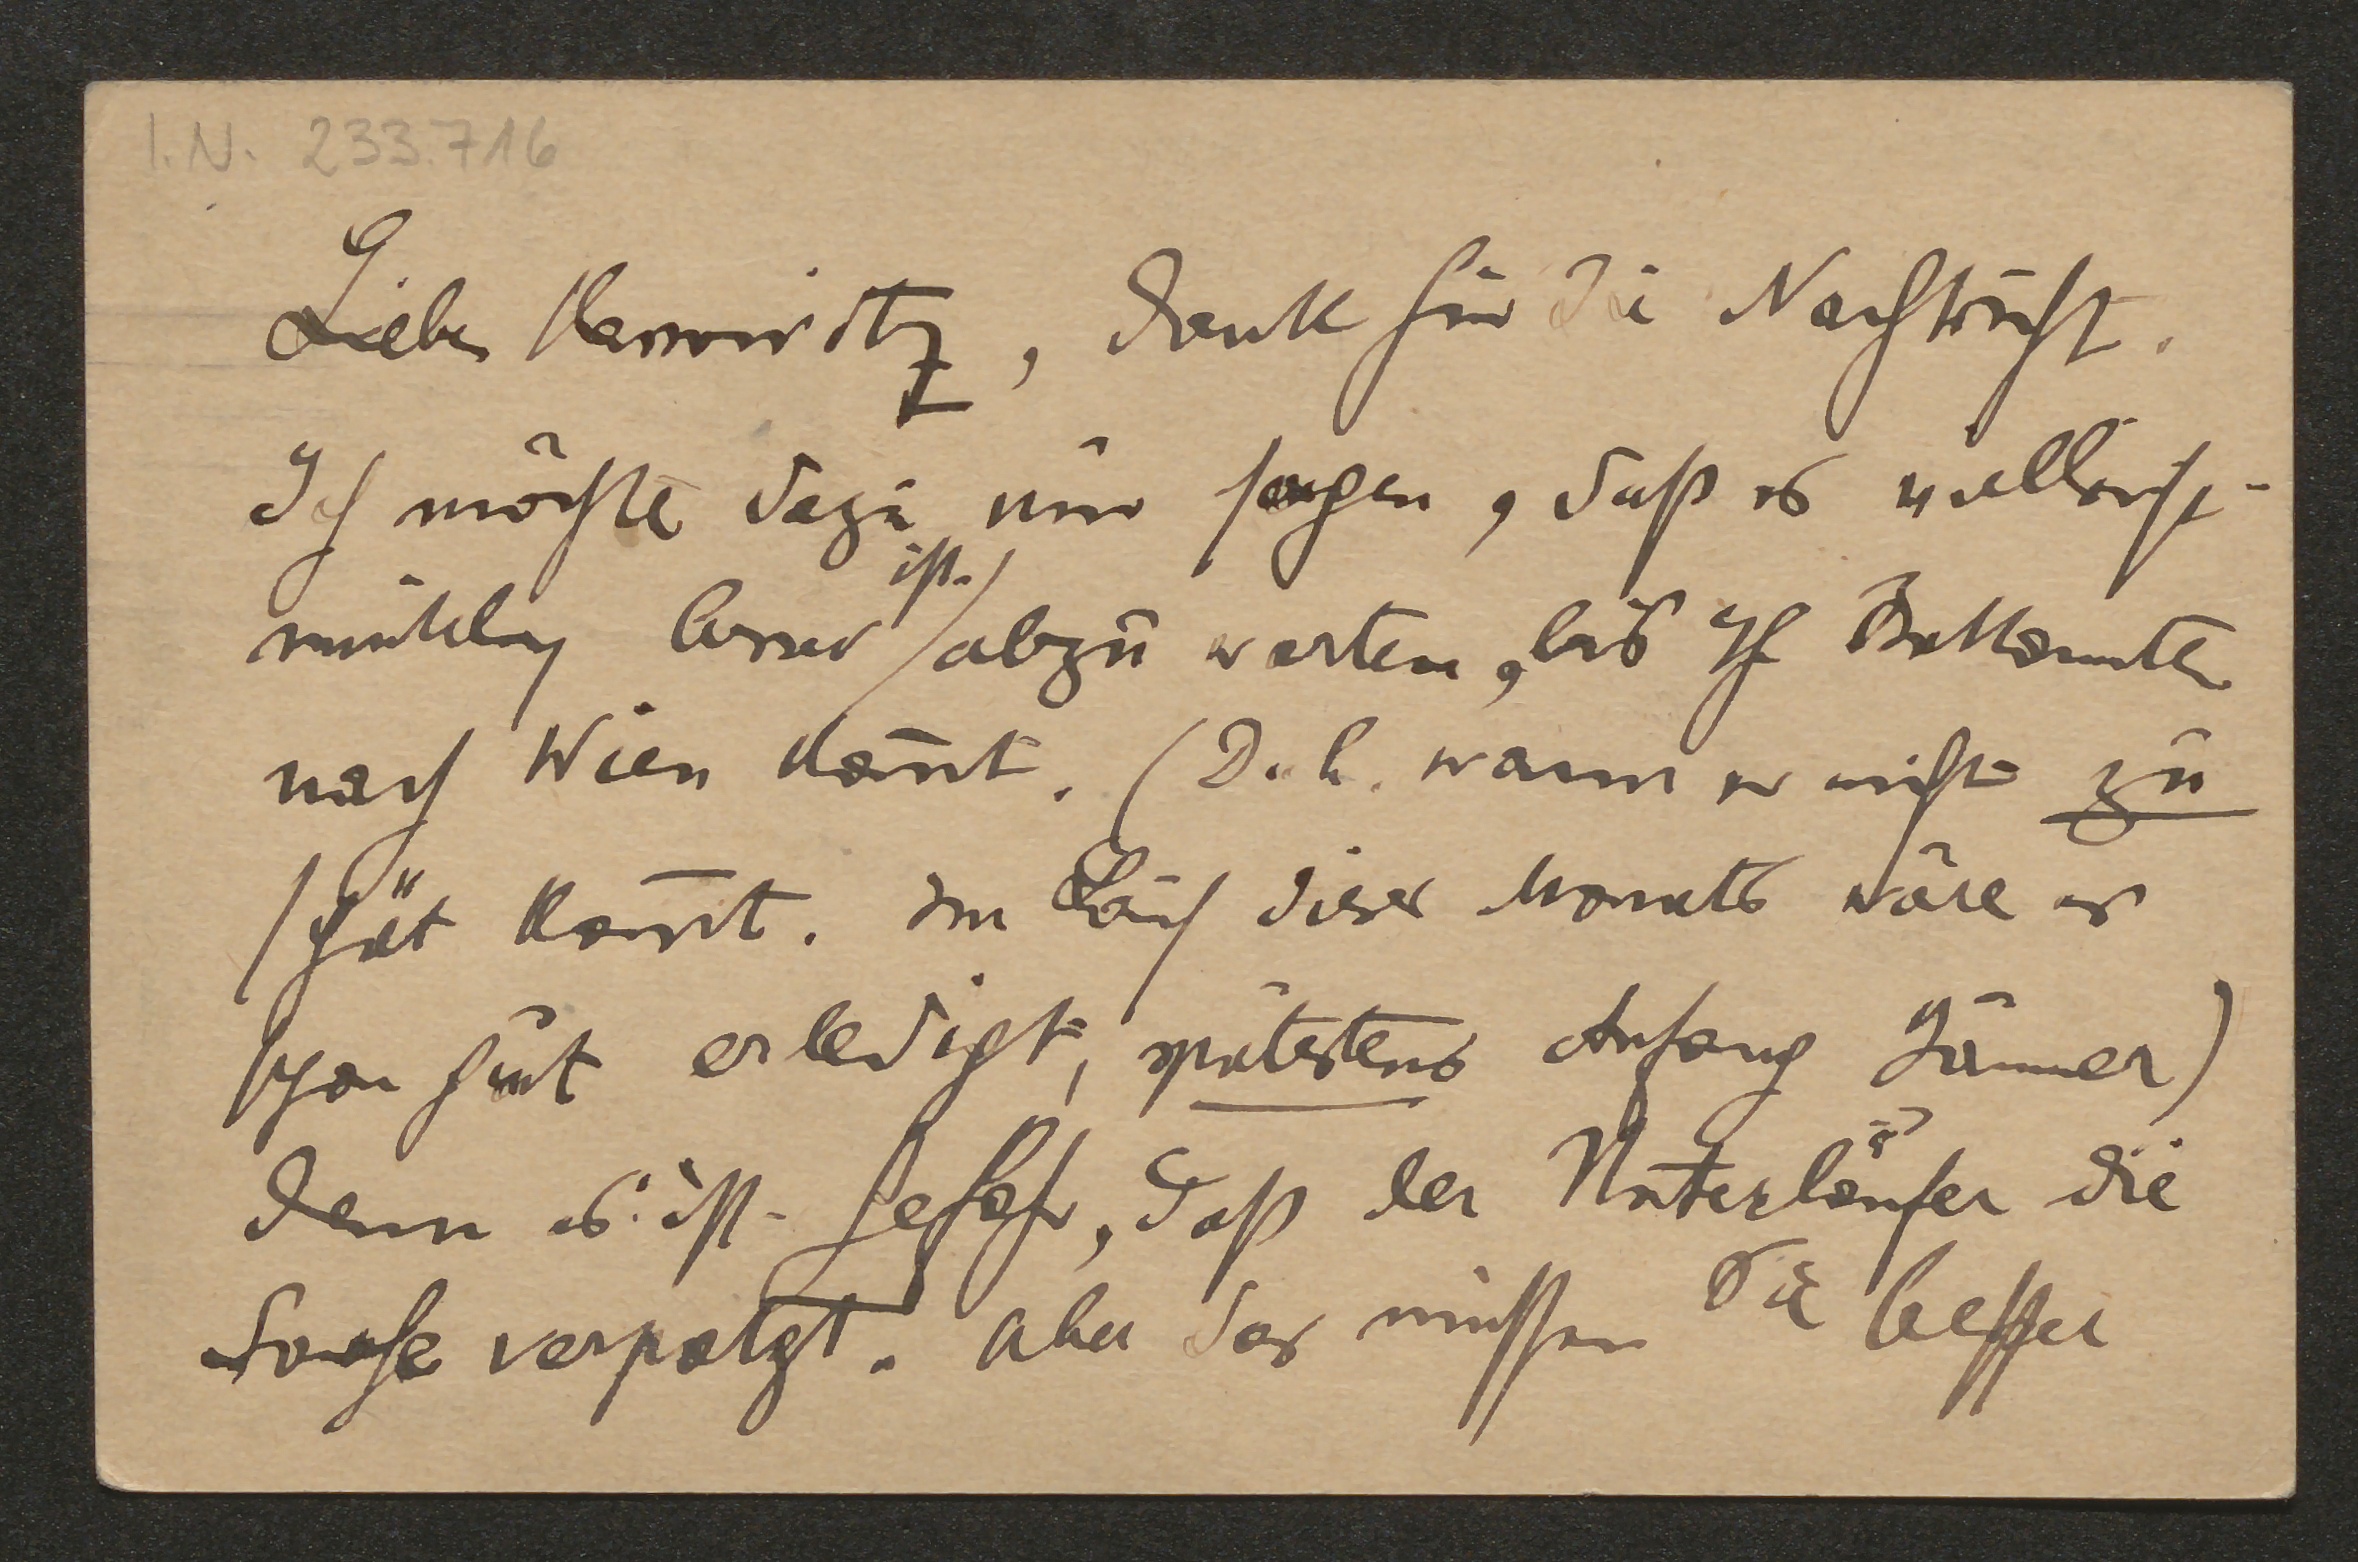 I.N. 233.716
Lieber, Dank für die Nachricht.
Ich möchte dazu nur sagen, daß es vielleicht
besser ist abzuwarten, bis Ihr Bekannter
nach Wien kom̅t. (D. h. wann er nicht zu
spät kom̅t. Im Lauf dieses Monats wäre es
schon gut erledigt, spätestens Anfang Jänner)
denn es ist Gefahr, daß der Unterläufer die
Sache verpatzt. Aber das müssen Sie besser